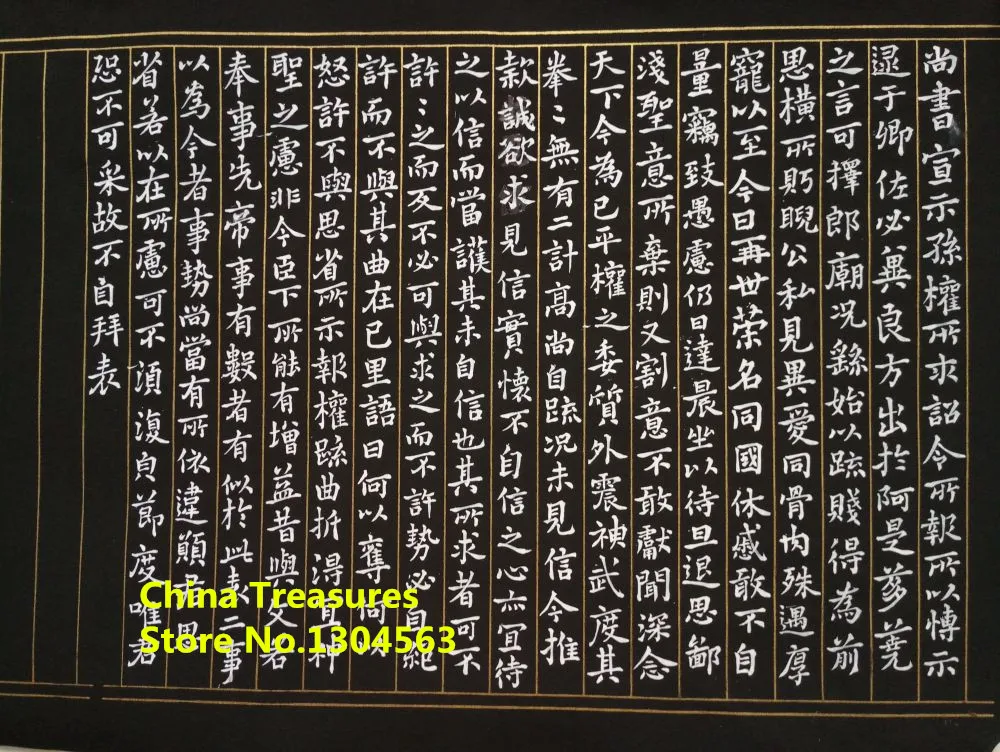 尚書宣示孫權所求詔令所報所以博示
逮于卿佐必冀良方出於阿是芻蕘
之言可擇郎廟況繇始以疏賤得為前
思橫所眄睨公私見異愛同骨肉殊遇厚
寵以至今日再世榮名同國休慼敢不自
量竊致愚慮仍日達晨坐以待旦退思鄙
淺聖意所棄則又割意不敢獻聞深念
天下今為已平權之委質外震神武度其
拳〻無有二計高尚自疏況未見信今推
款誠欲求見信實懷不自信之心亦宜待
之以信而當護其未自信也其所求者可不
許〻之而反不必可與求之而不許勢必自絕
許而不與其曲在己里語曰何以奪
怒許不與思省所示報權疏曲折得神
聖之慮非今臣下所能有增益昔與文若
奉事先帝事有數者有似於此二事
以為今者事勢尚當有所依違願君思
省若以在所慮可不須復負節度唯君
恐不可采故不自拜表
China Treasures
Store No.1304563